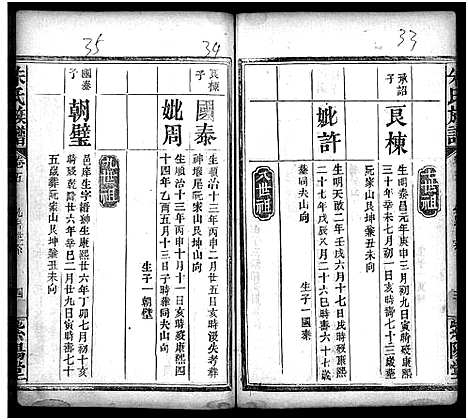 33
承詔
子
良棟
生明泰昌元年庚申三月初三日亥時歿康熙
三十年辛未七月初一日亥時壽七十二歲塟
阮家山艮坤兼丑未向
妣許
生明天啟二年壬戌六月十七日戌時歿康熙
二十七年戊辰八月二十九日寅時壽六十七歲
塟同夫山向
生子一國泰
大世祖
34
良棟
子
國泰
生順治十三年丙申二月廿五日亥時歿失考塟
神堰尾阮家山艮坤山向
妣周
生順治十三年丙申十月十一日亥時歿康熙四
十四年乙酉五月十三日子時塟同夫山向
生子一朝璧
大世祖
35
國泰
子
朝璧
邑庠生字縉翀生康熙廿六年丁卯七月初十亥
時歿乾隆廿六年辛巳二月廿九日寅時壽七十
五歲塟阮家山艮坤兼丑未向
朱氏族譜
卷五
四
紫陽堂